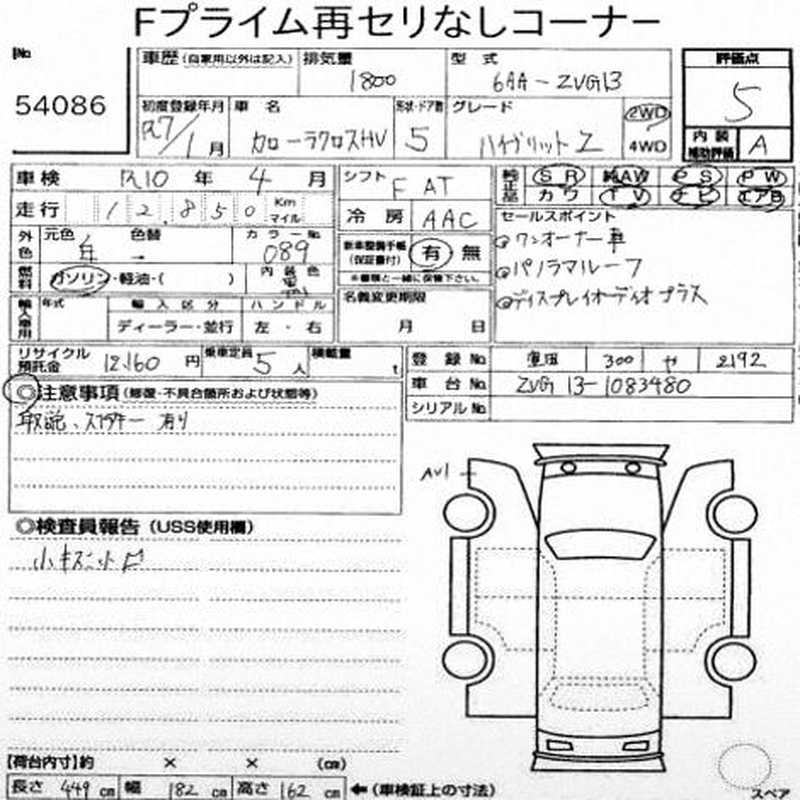 Fプライム再セリなしコーナー
No. 54086
車歴 (自家用以外は記入) 排気量 1800 型式 6AA-ZVG13 評価点 5
初度登録年月 R7/1月 車名 カローラクロスHV 形状・ドア数 5 グレード ハイブリット Z 2WD 4WD 内装補助評価 A
車検 R10年 4月 シフト F AT 純正品 SR 純AW PS PW
走行 12,850 Km マイル 冷房 AAC カワ TV ナビ エアB
外色 元色 色替 カラーNo. 089 新車整備手帳 (保証書付) 有 無 ※書類と一緒に保管下さい。
セールスポイント
ワンオーナー車
パノラマルーフ
ディスプレイオーディオプラス
燃料 ガソリン・軽油・( ) 内装色
名義変更期限 月 日
輸入車用 年式 輸入区分 ディーラー・並行 ハンドル 左・右
リサイクル預託金 12,160円 乗車定員 5人 積載量 t
登録No. 300 2192
車台No. ZVG13-1083480
シリアルNo.
◎注意事項 (修復・不具合箇所および状態等)
取説、スペアキー 有り
◎検査員報告 (USS使用欄)
小キズ
AU1
【荷台内寸】約 × × (cm)
長さ 449 cm 幅 182 cm 高さ 162 cm ←(車検証上の寸法)
スペア